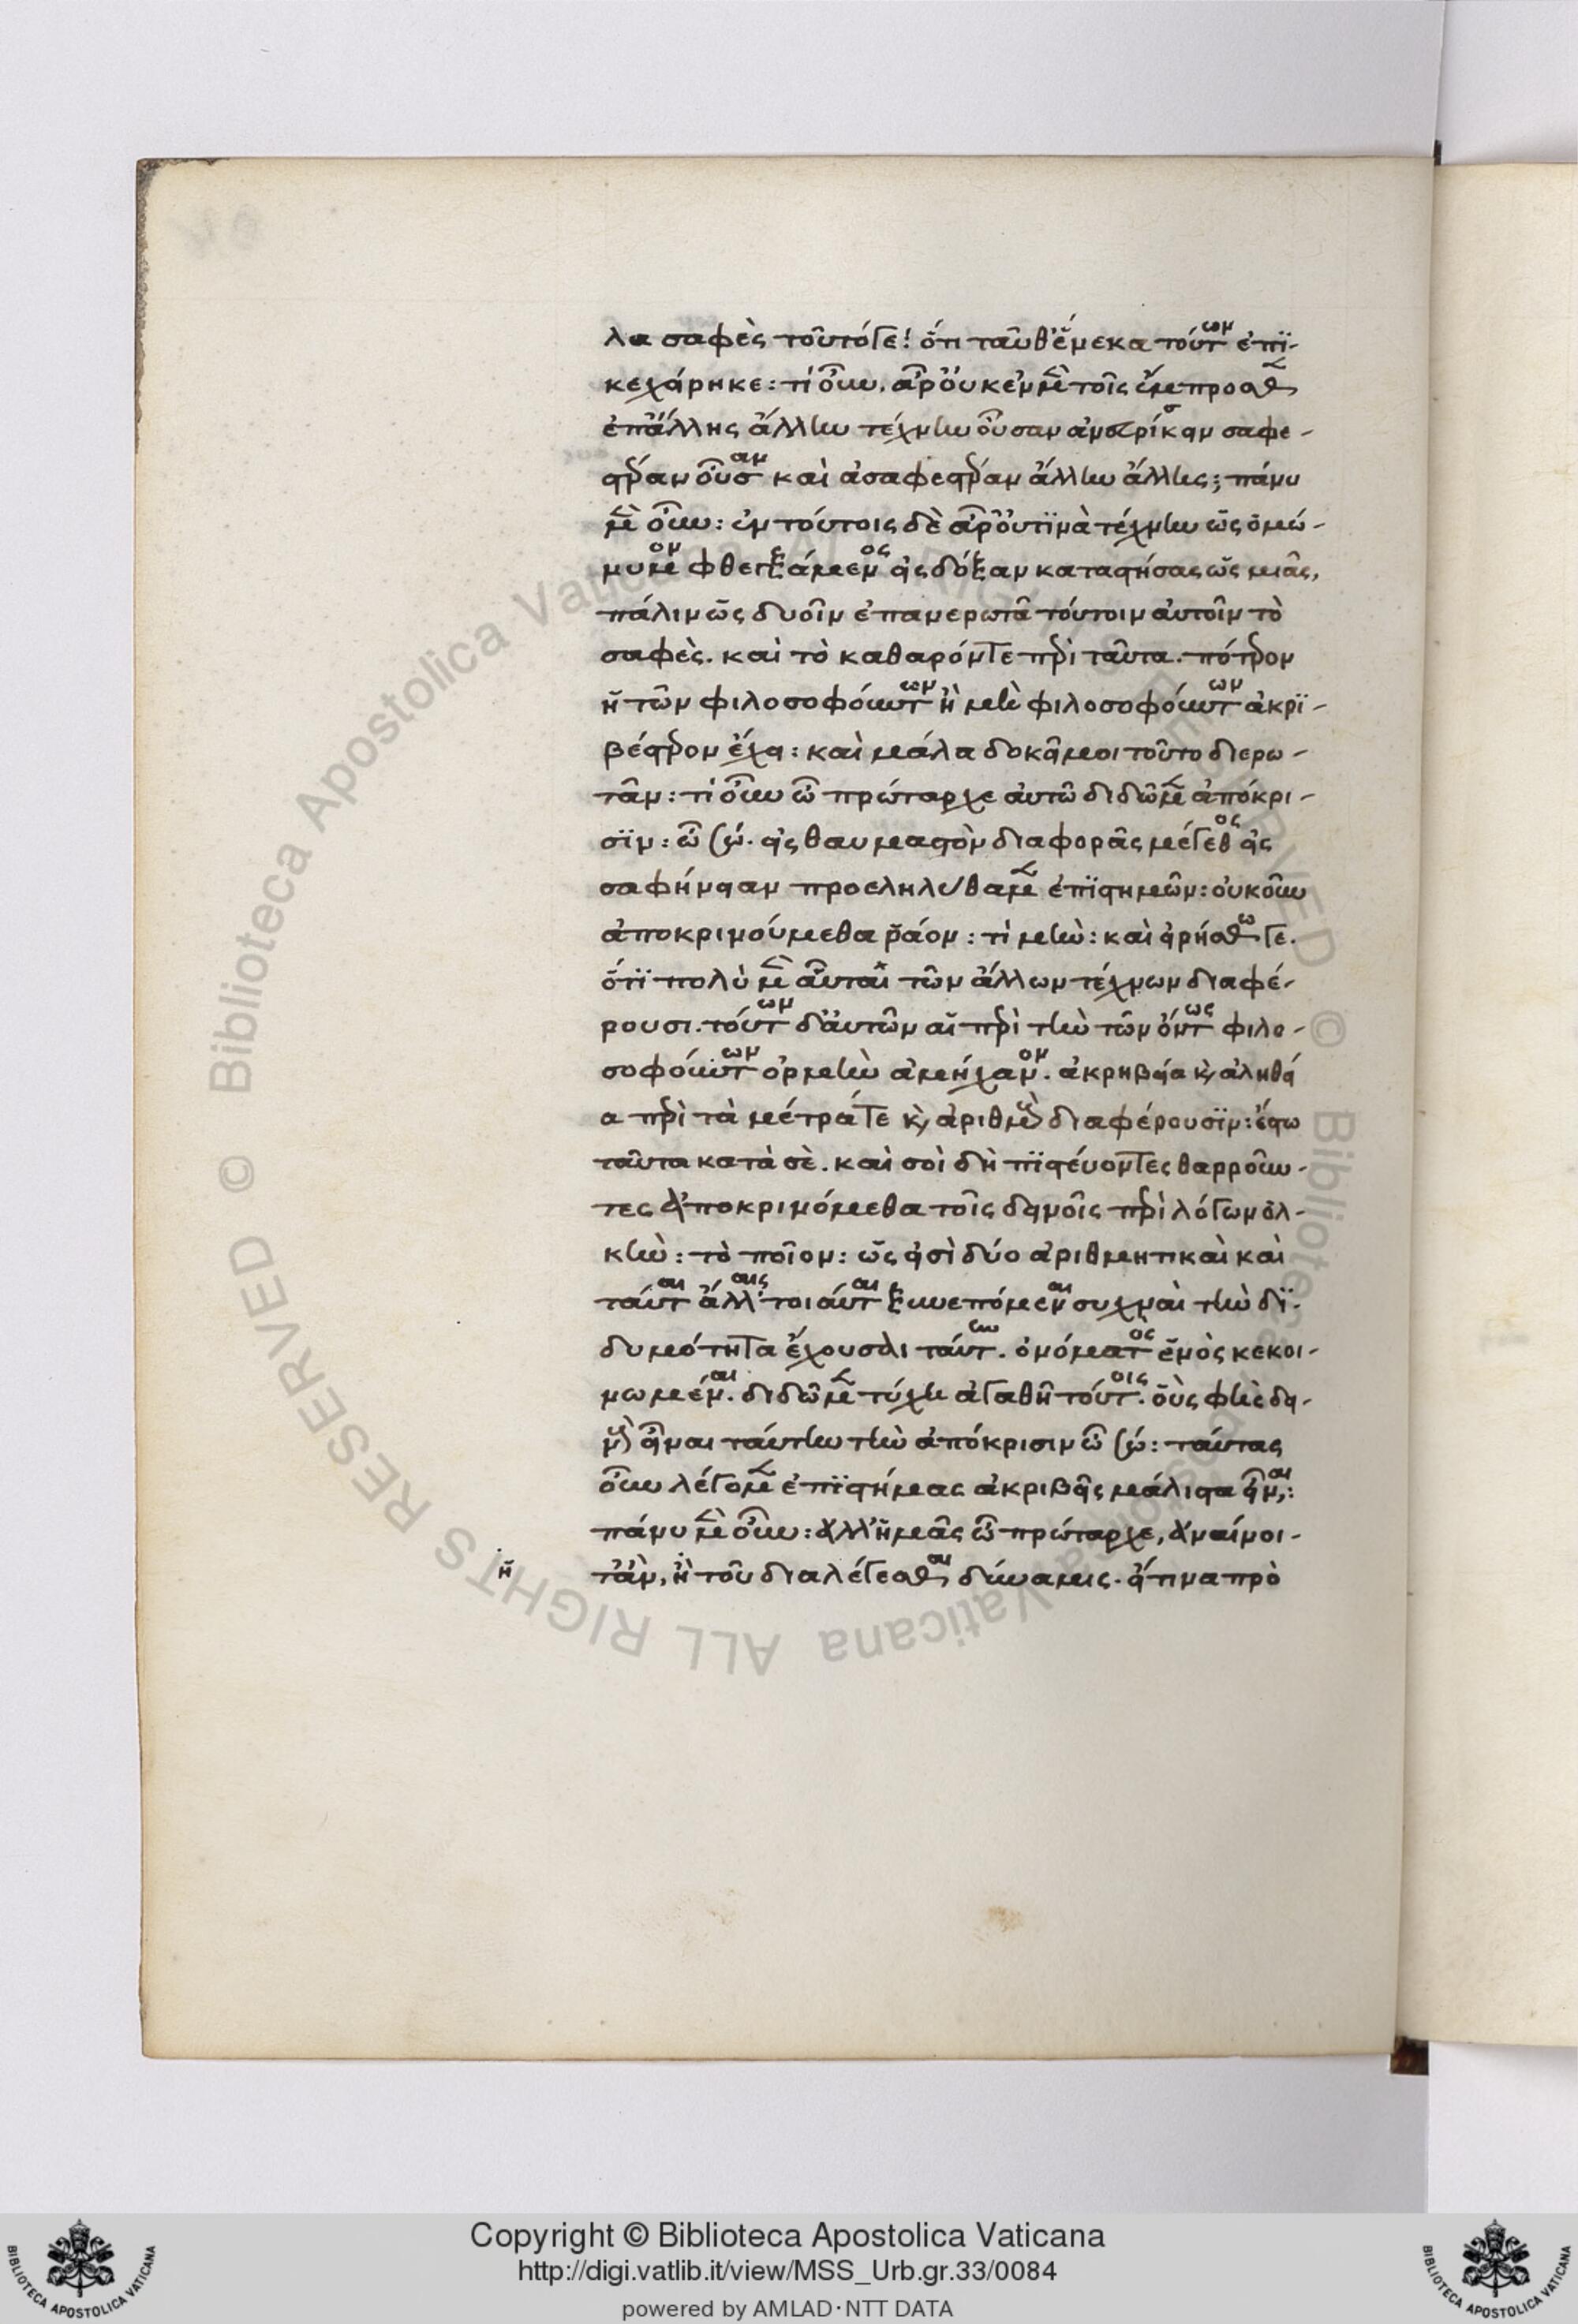 λα σαφὲς τοῦτό γε! ὅτι ταῦθ' ἕνεκα τούτων ἐπϊ-
κεχάρηκε: τί οὖν. ἆρ' οὐκ ἐν μὲν τοῖς ἔμπροσθεν
ἐπ' ἄλλης ἄλλην τέχνην οὖσαν ἀνευρίσκειν σαφε-
στέραν οὖσαν καὶ ἀσαφεστέραν ἄλλην ἄλλης; πάνυ
μὲν οὖν: ἐν τούτοις δὲ ἆρ' οὔ τϊνὰ τέχνην ὡς ὁμώ-
νυμον φθεγξάμενος εἰς δόξαν καταστήσας ὡς μιᾶς,
πάλιν ὡς δυοῖν ἐπανερωτᾶ τούτοιν αὐτοῖν τὸ
σαφὲς. καὶ τὸ καθαρόν τε περὶ ταῦτα. πότερον
ἢ τῶν φιλοσοφούντων ἢ μὴ φιλοσοφούντων ἀκρϊ-
βέστερον ἔχει: καὶ μάλα δοκεῖ μοι τοῦτο διερω-
τᾶν: τί οὖν ὦ πρώταρχε αὐτῶ διδῶμεν ἀπόκρι-
σϊν: ὦ σώ. εἰς θαυμαστὸν διαφορᾶς μέγεθος εἰς
σαφήνειαν προεληλύθαμεν ἐπϊστημῶν: οὐκοῦν
ἀποκρινούμεθα ῥᾶον: τί μὴν: καὶ εἰρήσθω γε.
ὅτϊ πολὺ μὲν αὗται τῶν ἄλλων τέχνων διαφέ-
ρουσι. τούτων δ' αὐτῶν αἱ περὶ τὴν τῶν ὄντως φιλο-
σοφούντων ὁρμὴν ἀμήχανον. ἀκρηβεία κ, ἀληθεί
α περὶ τὰ μέτρά τε κ, ἀριθμοὺς διαφέρουσϊν: ἔστω
ταῦτα κατὰ σὲ. καὶ σοὶ δὴ πϊστεύοντες θαρροῦν-
τες ἀποκρινόμεθα τοῖς δεινοῖς περὶ λόγων ὁλ-
κὴν: τὸ ποῖον: ὡς εἰσὶ δύο ἀριθμητικαὶ καὶ
ταύταις ἄλλαι τοιαῦται ξυνεπόμεναι συχναὶ τὴν δϊ-
δυμότητα ἔχουσαι ταύτην. ὀνόματος ἑνὸς κεκοι-
νωμέναι. διδῶμεν τύχη ἀγαθῆ τούτοις. οὓς φὴς δει-
νοὺς εἶναι ταύτην τὴν ἀπόκρισιν ὦ σώ: ταύτας
οὖν λέγομεν ἐπϊστήμας ἀκριβεῖς μάλιστα εἶναι:
πάνυ μὲν οὖν: ἀλλ' ἡμᾶς ὦ πρώταρχε, ἀναίνοι-
ἢ τἂν, ἡ τοῦ διαλέγεσθαι δύναμις. εἴ τινα πρὸ
Copyright © Biblioteca Apostolica Vaticana
http://digi.vatlib.it/view/MSS_Urb.gr.33/0084
powered by AMLAD·NTT DATA